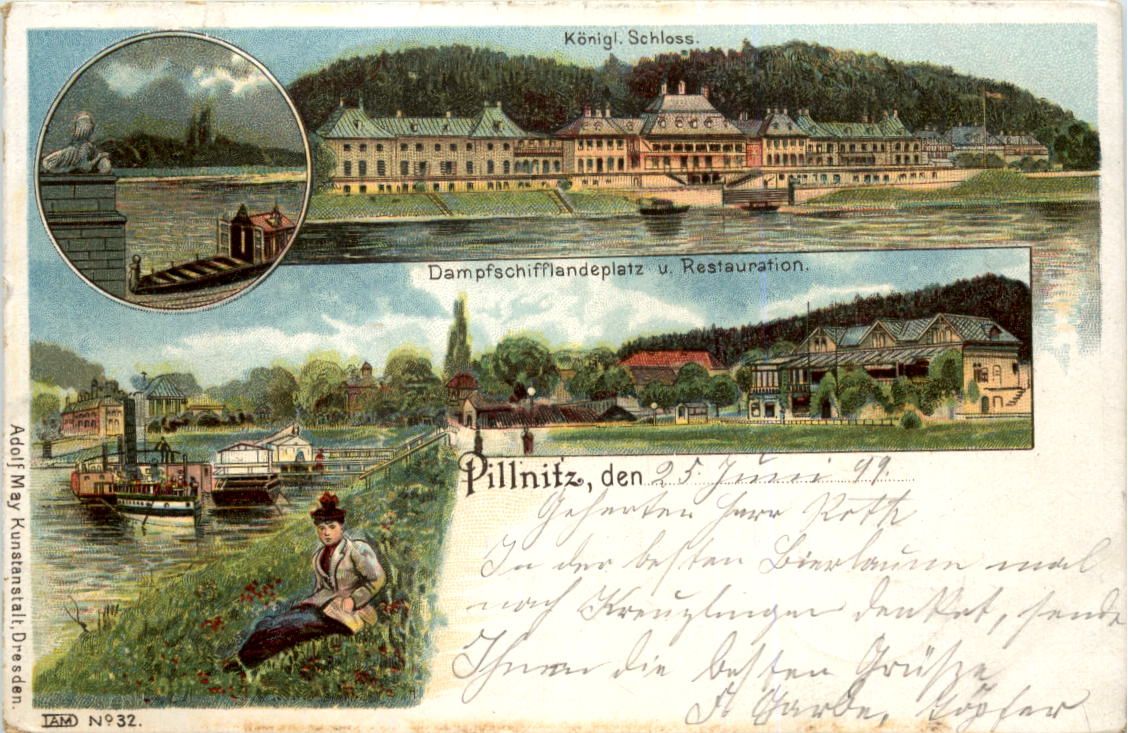 Königl. Schloss.
Dampfschifflandeplatz u. Restauration.
Pillnitz, den 25. Juni 99.
Geherten Herr Roth
In der besten Bierlaune mal
nach Kreuzlingen denkend, sende
Ihnen die besten Grüße
Garbe, Töpfer
Adolf May Kunstanstalt, Dresden.
IAMD No 32.